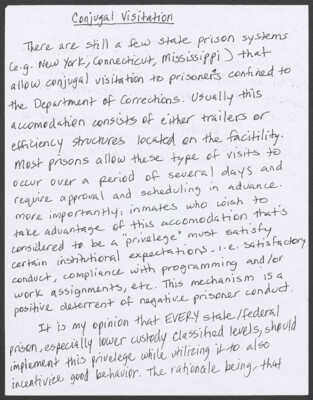 Conjugal Visitation
There are still a few state prison systems
(e.g. New York, Connecticut, Mississippi) that
allow conjugal visitation to prisoners confined to
the Department of Corrections. Usually this
accomodation consists of either trailers or
efficiency structures located on the facitility.
Most prisons allow these type of visits to
occur over a period of several days and
require approval and scheduling in advance.
more importantly, inmates who wish to
take advantage of this accomodation that's
considered to be a "privelege" must satisfy
certain institutional expectations, i.e. satisfactory
conduct, compliance with programming and/or
work assignments, etc. This mechanism is a
positive deterrent of negative prisoner conduct.
It is my opinion that EVERY state/federal
prison, especially lower custody classified levels, should
implement this privelege while utilizing it to also
incentivize good behavior. The rationale being, that